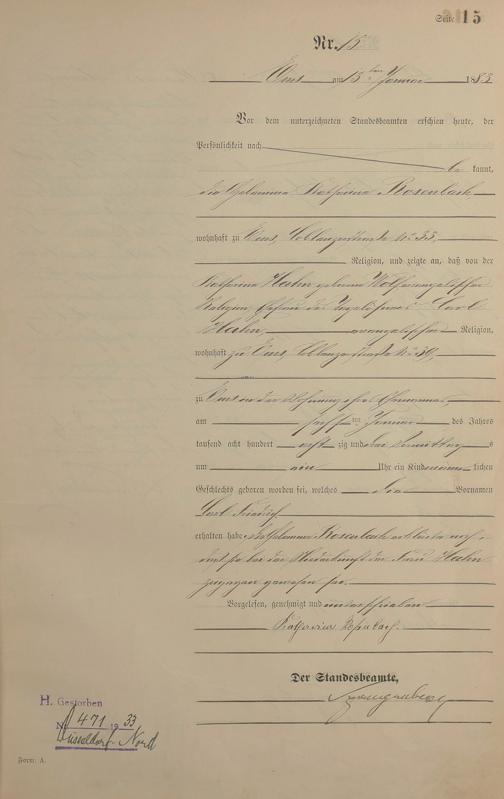 Seite 15
Nr. 15
Ems am 15ten Januar 1883
Vor dem unterzeichneten Standesbeamten erschien heute, der
Persönlichkeit nach
be kannt,
die Hebamme Katharina Rosenbach
wohnhaft zu Ems, Coblenzerstraße No 33,
Religion, und zeigte an, daß von der
Katharina Hahn geborene Wolf evangelischer
Religion, Ehefrau des Carl
Hahn, evangelischer Religion,
wohnhaft zu Ems, Coblenzerstraße No 39,
zu Ems in der Wohnung ihres Ehemannes,
am Januar des Jahres
tausend acht hundert acht zig und drei Vormittags
um neun Uhr ein Kind männ lichen
Geschlechts geboren worden sei, welches den Vornamen
Carl Friedrich
erhalten habe. Hebamme Rosenbach erklärte noch,
daß sie bei der Niederkunft der Frau Hahn
zugegen gewesen sei.
Vorgelesen, genehmigt und unterschrieben
Katharina Rosenbach.
Der Standesbeamte,
H. Gestorben
Nr. 471 1933
Düsseldorf-Nord
Form. A.